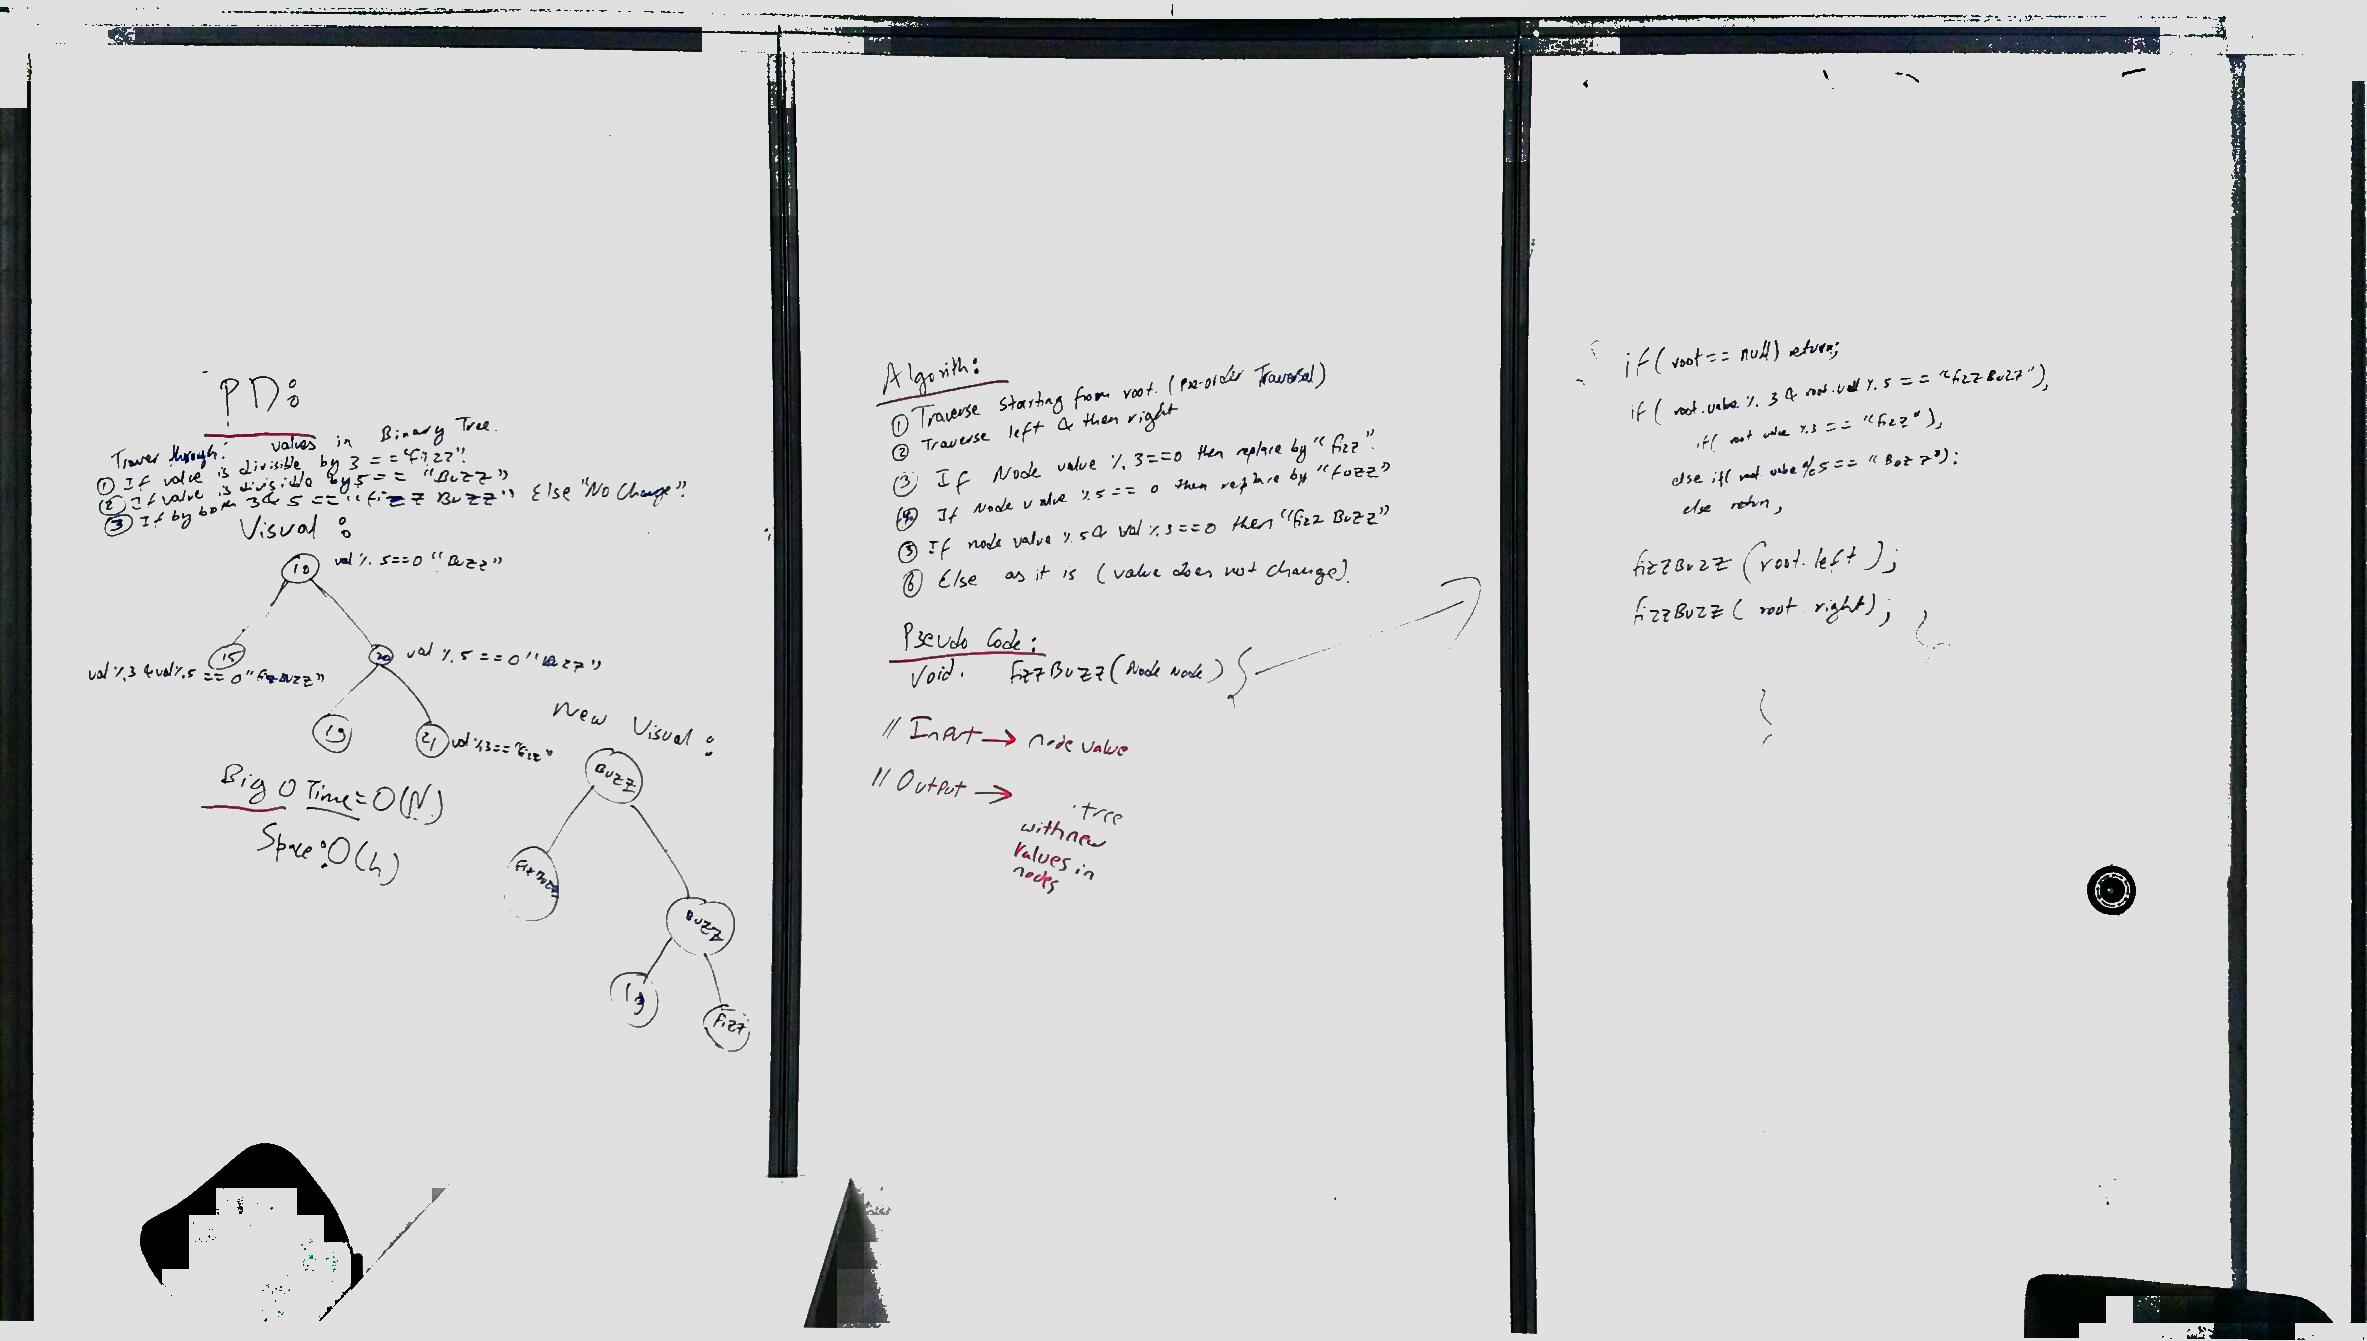 PD:
Traver through: values in Binary Tree.
① If value is divisible by 3 == "Fizz".
② If value is divisible by 5 == "Buzz")
③ If by both 3 & 5 == "Fizz Buzz") Else "No Change".
Visual :
10
val %. 5==0 "Buzz"
15
val %.3 & val%.5 == 0 "FizzBuzz"
20
val %. 5 ==0 "Buzz")
19
21
val %3=="Fizz"
Big O Time = O(N)
Space: O(h)
New Visual :
Buzz
FizzBuzz
Buzz
19
Fizz
Algorith:
① Traverse starting from root. (Pre-order Traversal)
② Traverse left & then right
③ If Node value %. 3==0 then replace by "fizz".
④ If Node value %5 == 0 then replace by "fuzz"
⑤ If node value %. 5 & val %. 3==0 then "fizz Buzz"
⑥ Else as it is (value does not change).
Pseudo Code:
Void. FizzBuzz (Node Node) {
// Input → node value
// Output →
tree
with new
values in
nodes
if ( root == null) return;
if ( root.value %. 3 & root.val %. 5 == "fizzBuzz"),
if( root value %3 == "fizz"),
else if( root. value %5 == "Buzz"):
else return,
fizzBuzz (root. left );
fizzBuzz ( root right);
}
}